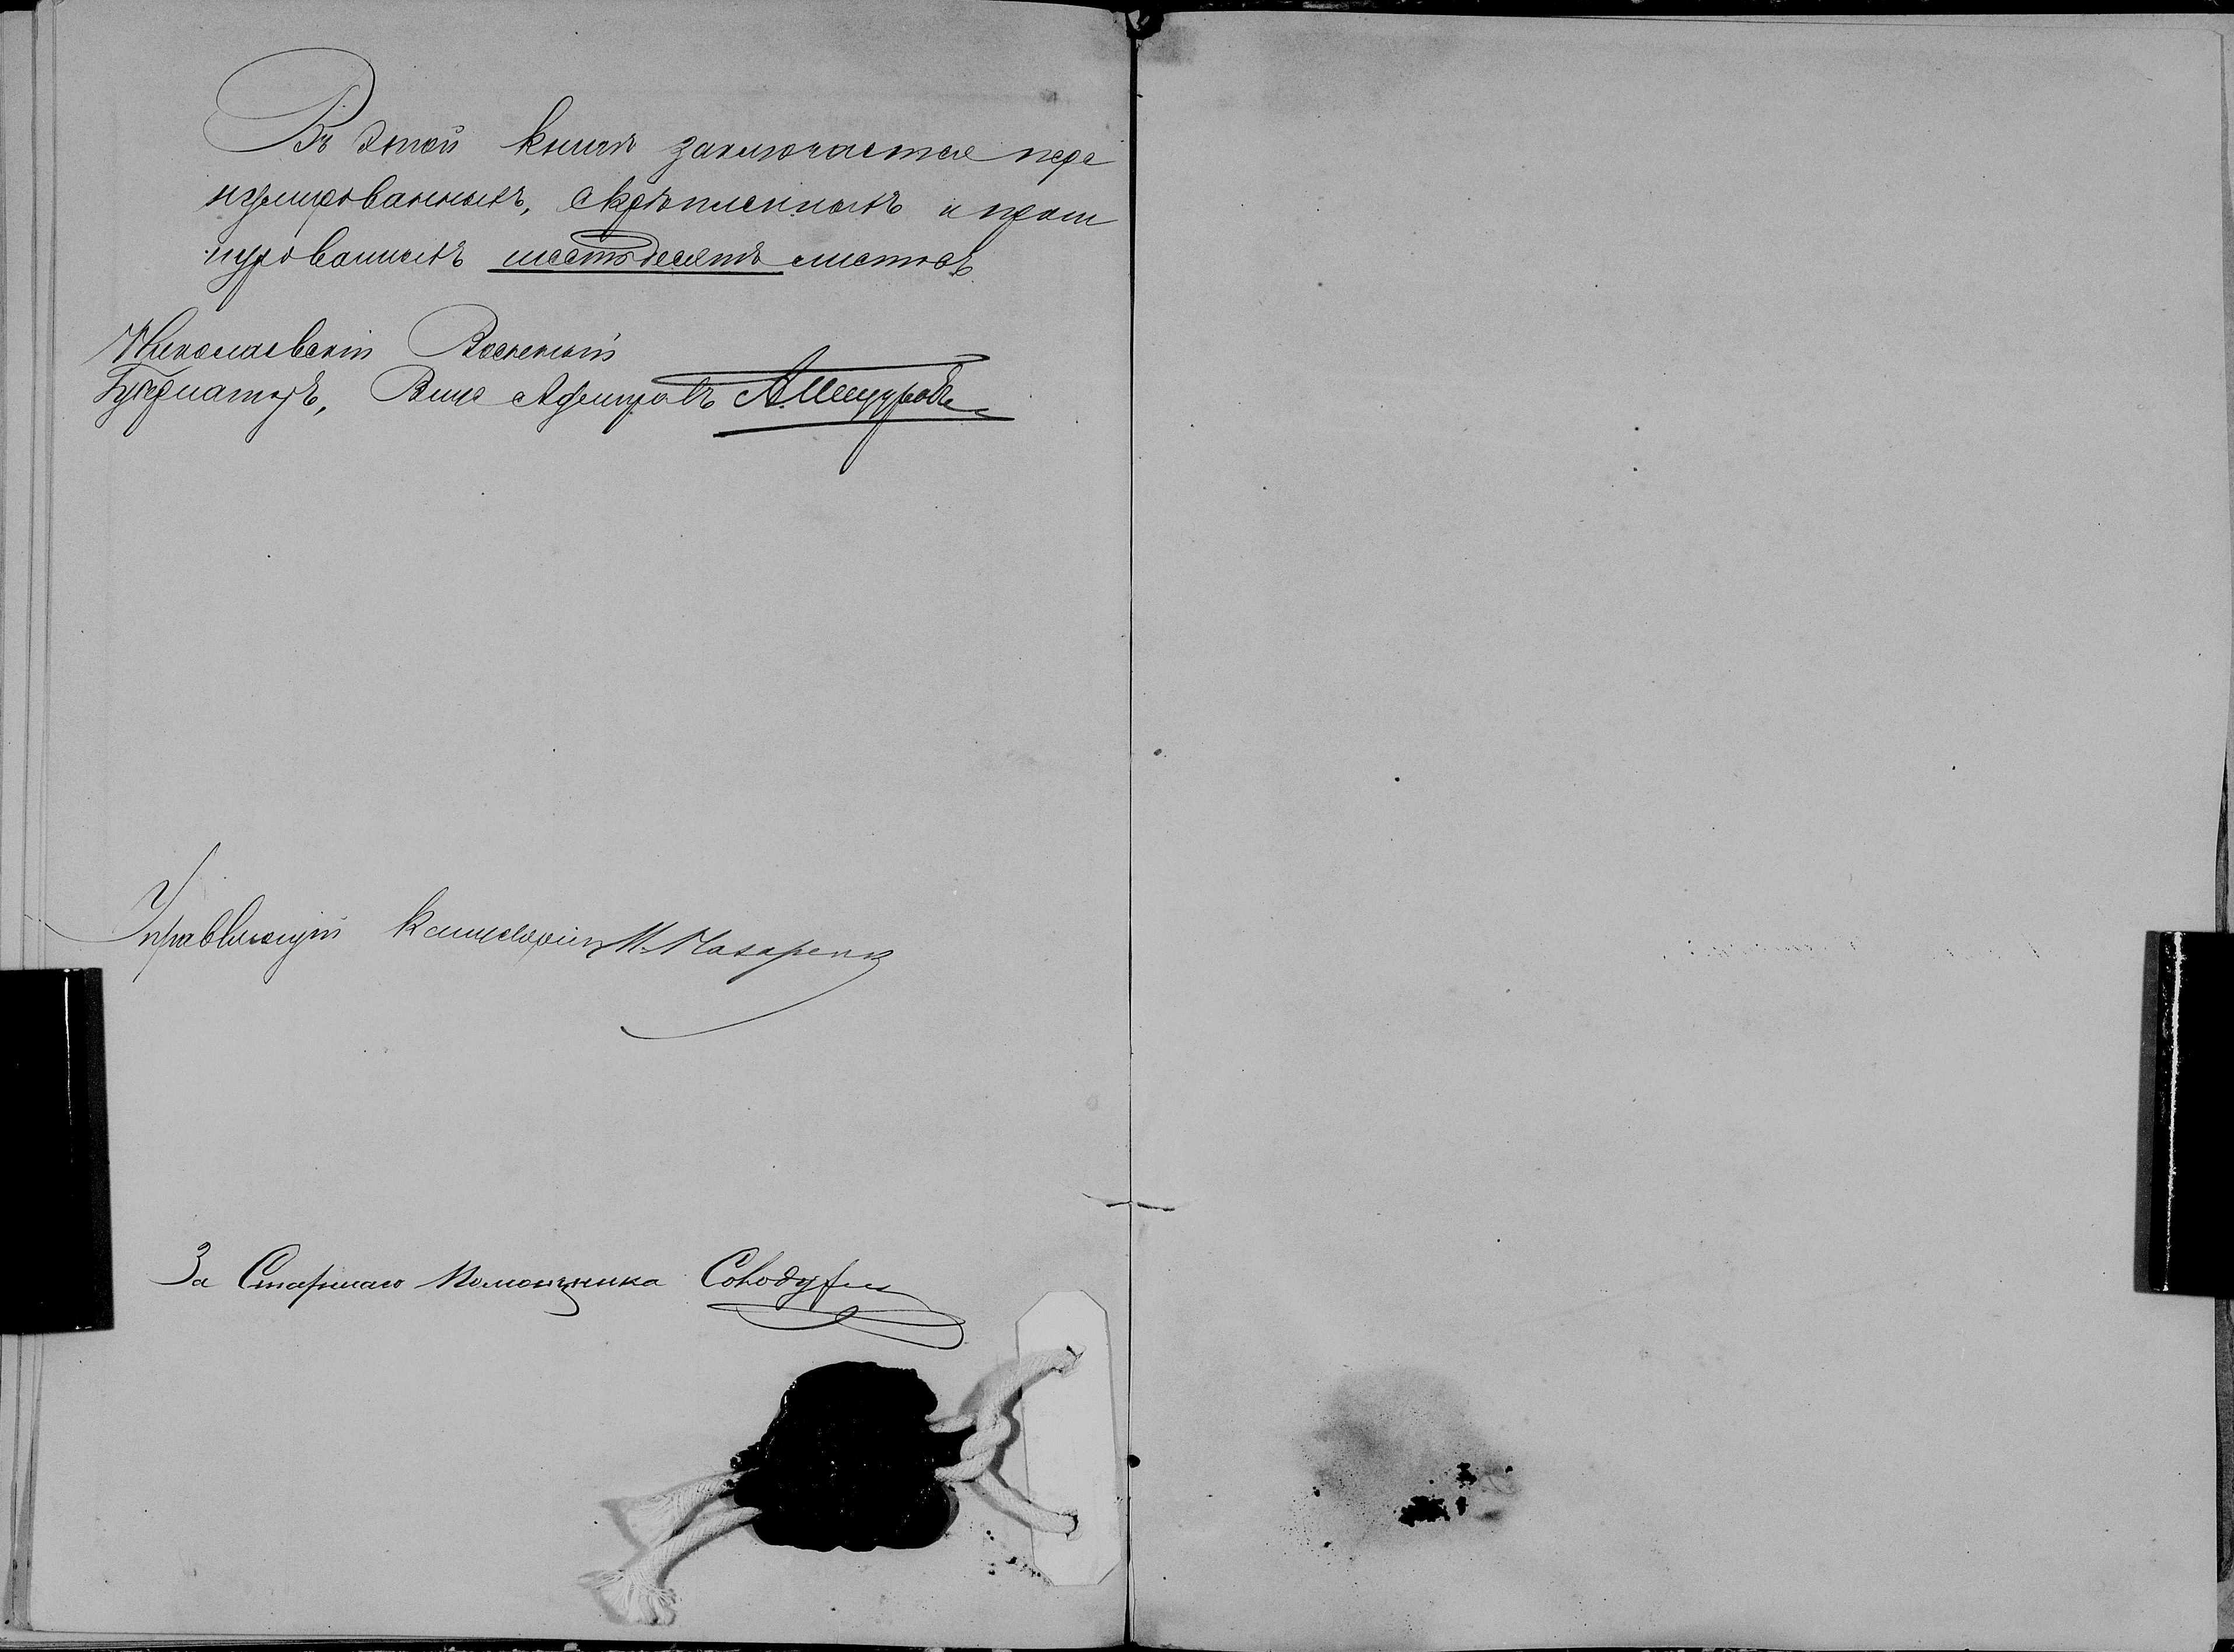 Въ этой книгѣ заключается пере
нумерованныхъ, скрѣпленныхъ и прош
нурованныхъ шестьдесятъ листовъ.
Николаевскій Военный
Губернаторъ, Вице Адмиралъ А. Пещуровъ
Управляющій Канцеляріею М. Назаренко
За Старшаго Помощника